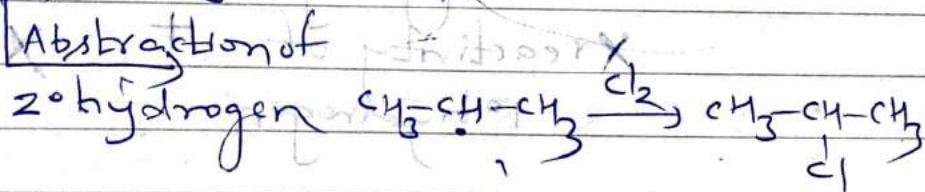 Abstraction of
2° hydrogen CH3-ĊH-CH3 →Cl2 CH3-CH-CH3
Cl